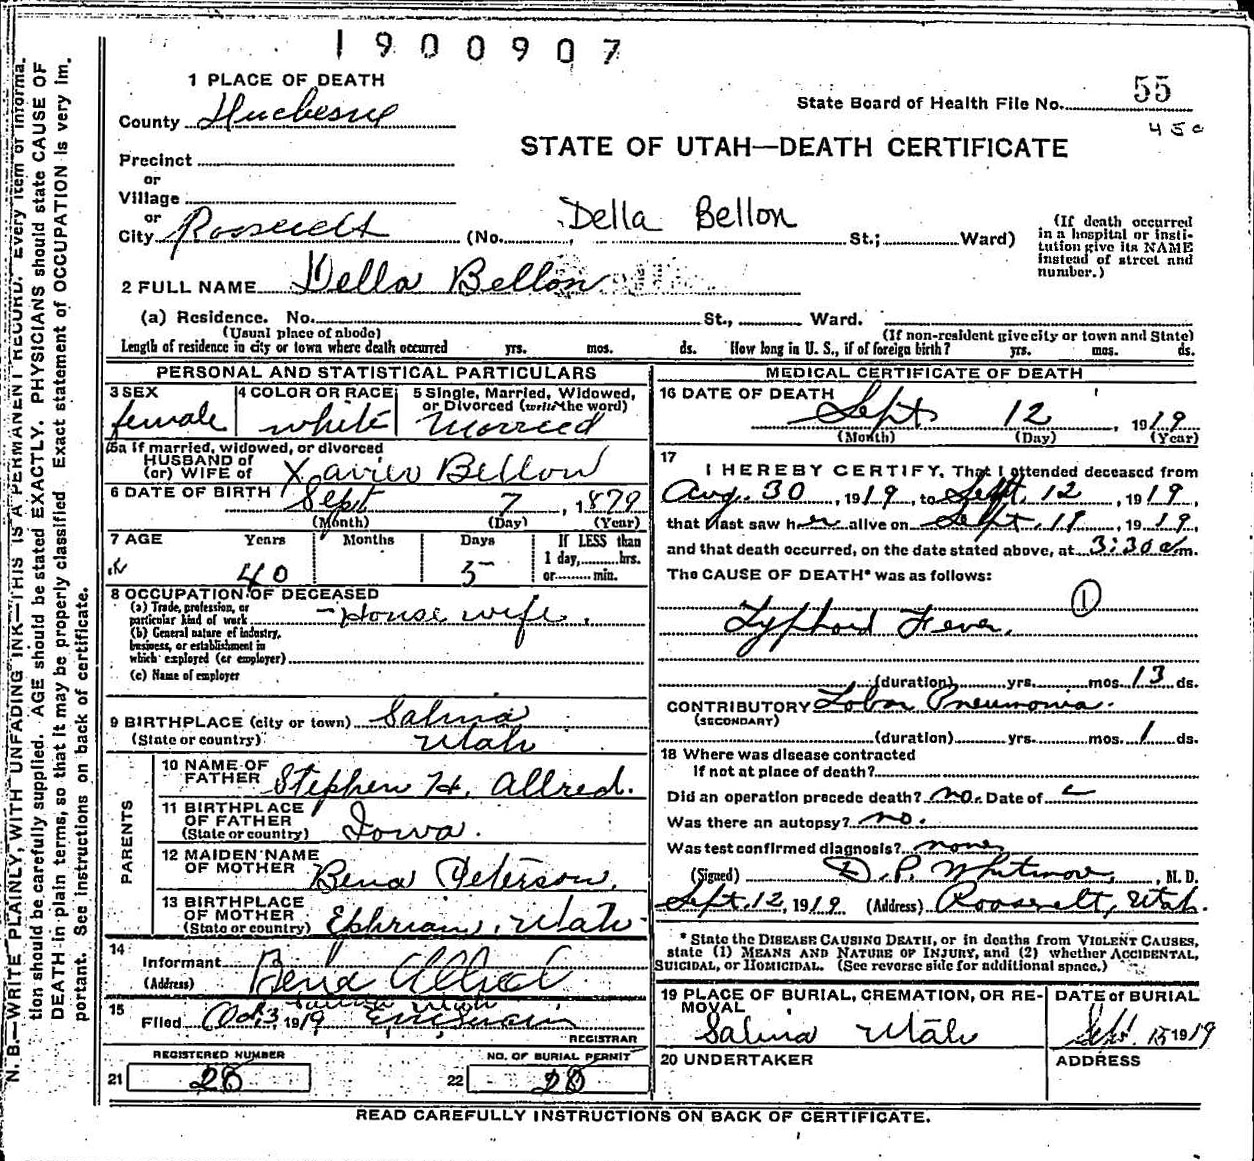 1900907
1 PLACE OF DEATH
State Board of Health File No. 55
County Duchesne
450
STATE OF UTAH—DEATH CERTIFICATE
Precinct
or
Village
or
City Roosevelt (No. Della Bellon St.; Ward)
(If death occurred in a hospital or insti-
tution give its NAME
instead of street and
number.)
2 FULL NAME Della Bellon
(a) Residence. No. St., Ward.
(Usual place of abode) (If non-resident give city or town and State)
Length of residence in city or town where death occurred yrs. mos. ds. How long in U. S., if of foreign birth? yrs. mos. ds.
PERSONAL AND STATISTICAL PARTICULARS
3 SEX
female
4 COLOR OR RACE
white
5 Single, Married, Widowed,
or Divorced (write the word)
Married
5a If married, widowed, or divorced
HUSBAND of
(or) WIFE of Xavier Bellon
6 DATE OF BIRTH Sept 7, 1879
(Month) (Day) (Year)
7 AGE Years Months Days If LESS than
1 day, hrs.
or min.
40 5
8 OCCUPATION OF DECEASED
(a) Trade, profession, or
particular kind of work House wife.
(b) General nature of industry,
business, or establishment in
which employed (or employer)
(c) Name of employer
9 BIRTHPLACE (city or town) Salina
(State or country) Utah
PARENTS
10 NAME OF
FATHER Stephen H. Allred.
11 BIRTHPLACE
OF FATHER
(State or country) Iowa.
12 MAIDEN NAME
OF MOTHER Bena Peterson.
13 BIRTHPLACE
OF MOTHER
(State or country) Ephriam, Utah
14
Informant Bena Allred
(Address) Salina Utah
15
Filed Oct. 3 1919
REGISTRAR
REGISTERED NUMBER
21 28
NO. OF BURIAL PERMIT
22 28
MEDICAL CERTIFICATE OF DEATH
16 DATE OF DEATH
Sept 12, 1919
(Month) (Day) (Year)
17
I HEREBY CERTIFY, That I attended deceased from
Aug. 30, 1919, to Sept. 12, 1919,
that I last saw her alive on Sept. 11, 1919,
and that death occurred, on the date stated above, at 3:30 a m.
The CAUSE OF DEATH* was as follows:
1
Typhoid Fever.
(duration) yrs. mos. 13 ds.
CONTRIBUTORY Lobar Pneumonia.
(SECONDARY)
(duration) yrs. mos. 1 ds.
18 Where was disease contracted
If not at place of death?
Did an operation precede death? no. Date of
Was there an autopsy? no.
Was test confirmed diagnosis? none
(Signed) D. P. Whitmore, M. D.
Sept. 12, 1919 (Address) Roosevelt, Utah.
* State the DISEASE CAUSING DEATH, or in deaths from VIOLENT CAUSES,
state (1) MEANS AND NATURE OF INJURY, and (2) whether ACCIDENTAL,
SUICIDAL, or HOMICIDAL. (See reverse side for additional space.)
19 PLACE OF BURIAL, CREMATION, OR RE-
MOVAL
Salina Utah
DATE of BURIAL
Sept. 15 1919
20 UNDERTAKER
ADDRESS
READ CAREFULLY INSTRUCTIONS ON BACK OF CERTIFICATE.
N. B.—WRITE PLAINLY, WITH UNFADING INK—THIS IS A PERMANENT RECORD. Every item of informa-
tion should be carefully supplied. AGE should be stated EXACTLY. PHYSICIANS should state CAUSE OF
DEATH in plain terms, so that it may be properly classified. Exact statement of OCCUPATION is very im-
portant. See instructions on back of certificate.